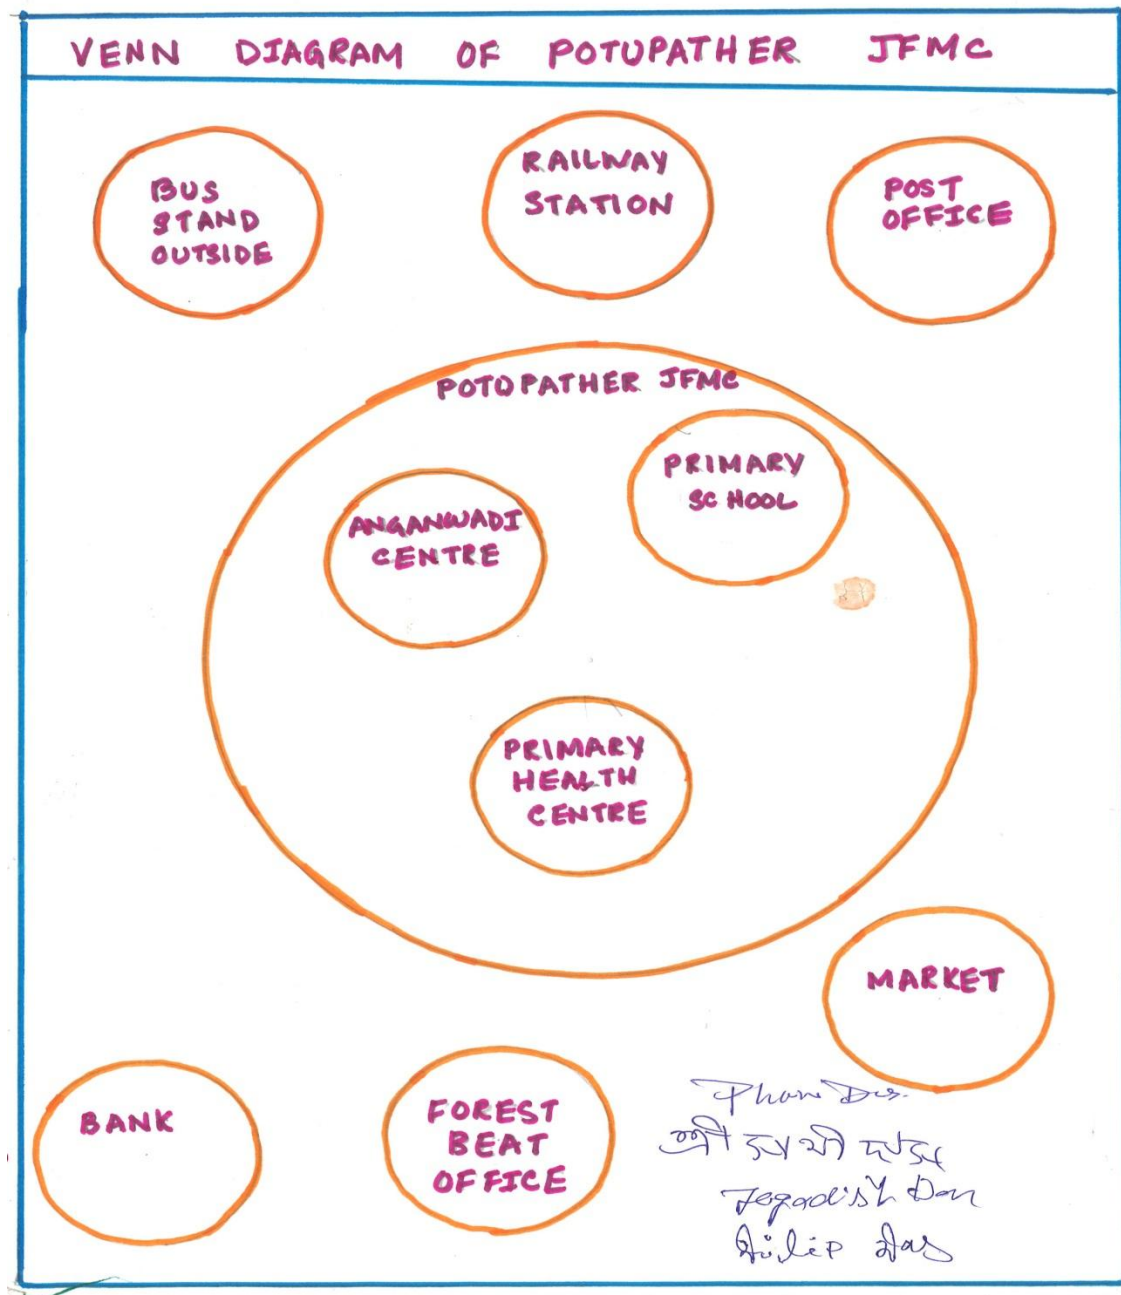 VENN DIAGRAM OF POTUPATHER JFMC
BUS
STAND
OUTSIDE
RAILWAY
STATION
POST
OFFICE
POTOPATHER JFMC
PRIMARY
SCHOOL
ANGANWADI
CENTRE
PRIMARY
HEALTH
CENTRE
MARKET
BANK
FOREST
BEAT
OFFICE
Das.
শ্ৰী
Jagadish Das
Dilip Das